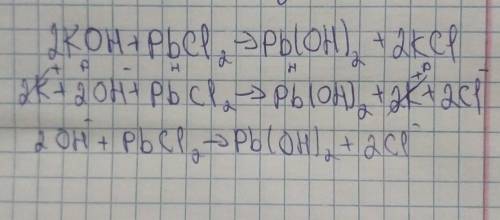 2KOH + PbCl₂ → Pb(OH)₂ + 2KCl
2K⁺ + 2OH⁻ + PbCl₂ → Pb(OH)₂ + 2K⁺ + 2Cl⁻
р н н р
2OH⁻ + PbCl₂ → Pb(OH)₂ + 2Cl⁻